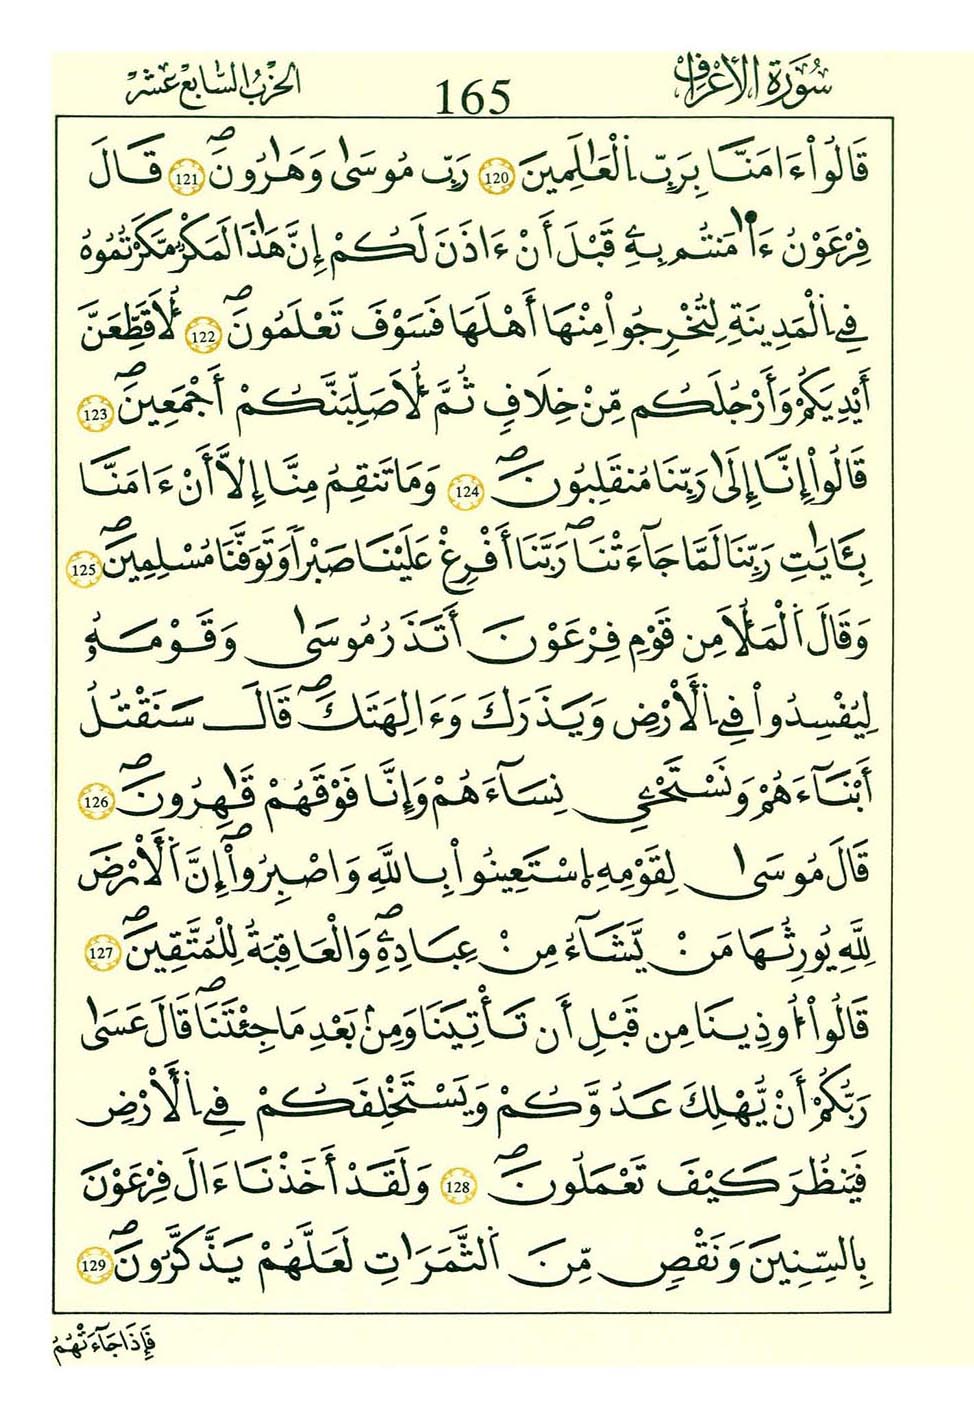 سُورَةُ الأَعْرَافِ 165 الحِزْبُ السَّابِعَ عَشَرَ
قَالُوٓاْ ءَامَنَّا بِرَبِّ اِ۬لْعَٰلَمِينَ 120 رَبِّ مُوسَىٰ وَهَٰرُونَۖ 121 قَالَ
فِرْعَوْنُ ءَاٰ۬مَنتُم بِهِۦ قَبْلَ أَنْ ءَاذَنَ لَكُمْ إِنَّ هَٰذَا لَمَكْرٌ مَّكَرْتُمُوهُ
فِے اِ۬لْمَدِينَةِ لِتُخْرِجُواْ مِنْهَآ أَهْلَهَا فَسَوْفَ تَعْلَمُونَۖ 122 لَأُقَطِّعَنَّ
أَيْدِيَكُمْ وَأَرْجُلَكُم مِّنْ خِلَٰفٍ ثُمَّ لَأُصَلِّبَنَّكُمْ أَجْمَعِينَۖ 123
قَالُوٓاْ إِنَّآ إِلَىٰ رَبِّنَا مُنقَلِبُونَۖ 124 وَمَا تَنقِمُ مِنَّآ إِلَّآ أَنْ ءَامَنَّا
بِـَٔايَٰتِ رَبِّنَا لَمَّا جَآءَتْنَاۖ رَبَّنَآ أَفْرِغْ عَلَيْنَا صَبْراً وَتَوَفَّنَا مُسْلِمِينَۖ 125
وَقَالَ اَ۬لْمَلَأُ مِن قَوْمِ فِرْعَوْنَ أَتَذَرُ مُوسَىٰ وَقَوْمَهُۥ
لِيُفْسِدُواْ فِے اِ۬لْأَرْضِ وَيَذَرَكَ وَءَالِهَتَكَۖ قَالَ سَنَقْتُلُ
أَبْنَآءَهُمْ وَنَسْتَحْيِۦ نِسَآءَهُمْ وَإِنَّا فَوْقَهُمْ قَٰهِرُونَۖ 126
قَالَ مُوسَىٰ لِقَوْمِهِ اِ۪سْتَعِينُواْ بِاللَّهِ وَاصْبِرُوٓاْۖ إِنَّ اَ۬لْأَرْضَ
لِلهِ يُورِثُهَا مَنْ يَّشَآءُ مِنْ عِبَادِهِۦۖ وَالْعَٰقِبَةُ لِلْمُتَّقِينَۖ 127
قَالُوٓاْ أُوذِينَا مِن قَبْلِ أَن تَأْتِيَنَا وَمِنۢ بَعْدِ مَا جِئْتَنَاۖ قَالَ عَسَىٰ
رَبُّكُمْ أَنْ يُّهْلِكَ عَدُوَّكُمْ وَيَسْتَخْلِفَكُمْ فِے اِ۬لْأَرْضِ
فَيَنظُرَ كَيْفَ تَعْمَلُونَۖ 128 وَلَقَدْ أَخَذْنَآ ءَالَ فِرْعَوْنَ
بِالسِّنِينَ وَنَقْصٍ مِّنَ اَ۬لثَّمَرَٰتِ لَعَلَّهُمْ يَذَّكَّرُونَۖ 129
فَإِذَا جَآءَتْهُمُ